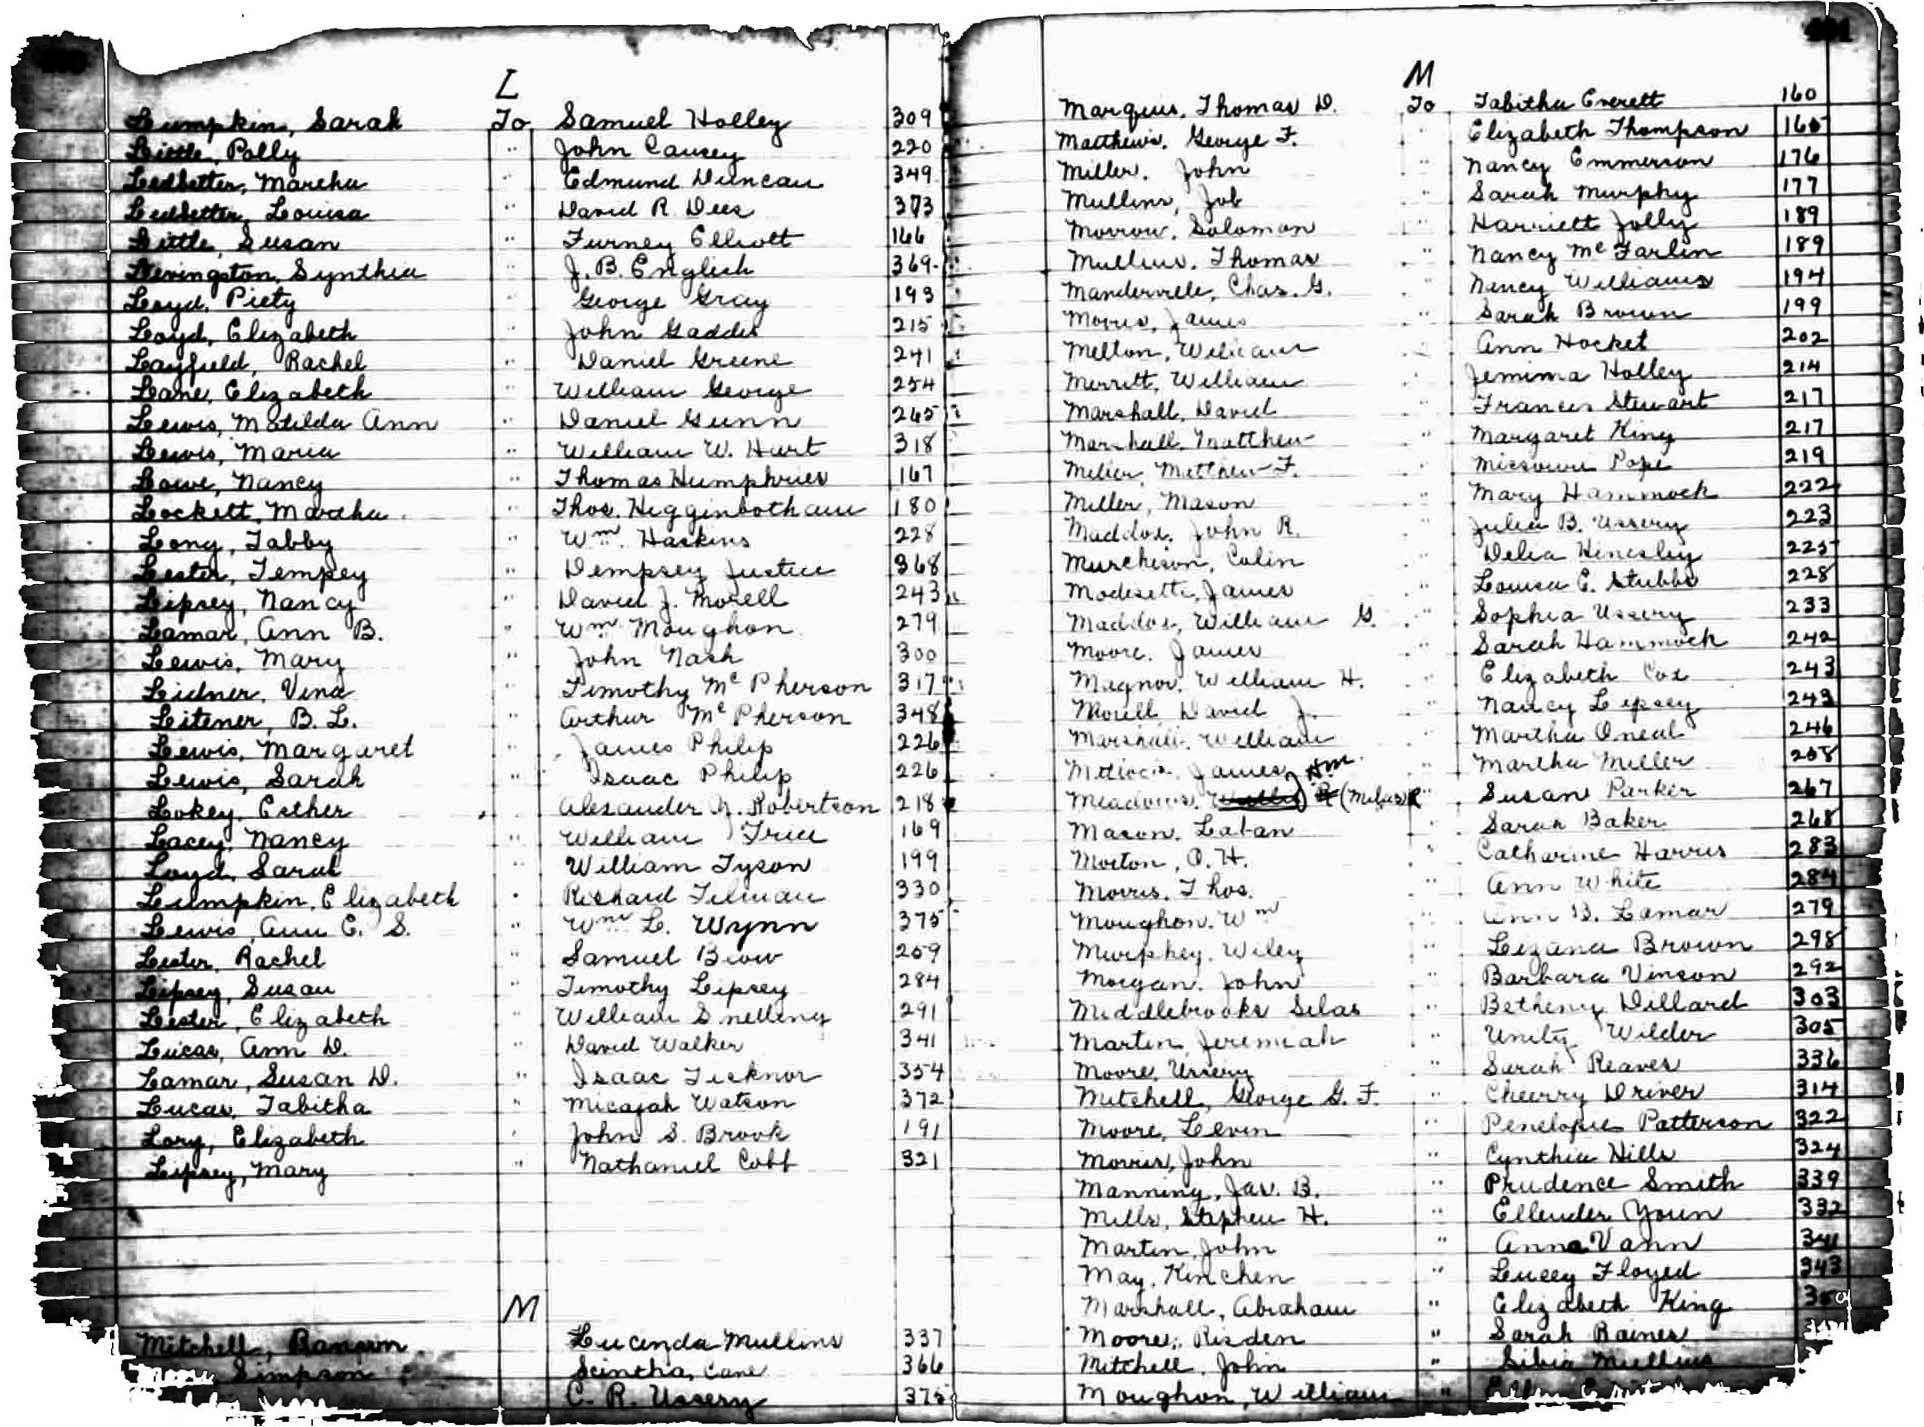 L
Lumpkin, Sarah To Samuel Holley 309
Little, Polly " John Causey 220
Ledbetter, Martha " Edmund Duncan 349
Ledbetter, Louisa " David R. Dees 373
Little, Susan " Furney Elliott 166
Levingston, Synthia " J. B. English 369
Loyd, Piety " George Gray 193
Loyd, Elizabeth " John Gaddis 215
Layfield, Rachel " Daniel Greene 241
Lane, Elizabeth " William George 254
Lewis, Matilda Ann " Daniel Gunn 265
Lewis, Maria " William W. Hart 318
Lowe, Nancy " Thomas Humphries 167
Lockett, Martha " Thos. Higginbotham 180
Long, Tabby " Wm. Haskins 228
Lester, Tempey " Dempsey Justice 368
Lipsey, Nancy " David J. Morell 243
Lamar, Ann B. " Wm Moughon 279
Lewis, Mary " John Nash 300
Lidner, Vina " Timothy McPherson 317
Litener, B. L. " Arthur McPherson 348
Lewis, Margaret " James Philip 226
Lewis, Sarah " Isaac Philip 226
Lokey, Esther " Alexander Robertson 218
Lacey, Nancy " William 169
Loyd, Sarah " William Tyson 199
Lumpkin, Elizabeth " Richard Tilman 330
Lewis, Ann E. S. " Wm L. Wynn 375
Lester, Rachel " Samuel 259
Lipsey, Susan " Timothy Lipsey 284
Lester, Elizabeth " William Snelling 291
Lucas, Ann D. " David Walker 341
Lamar, Susan D. " Isaac Ticknor 354
Lucas, Tabitha " Micajah Watson 372
Lory, Elizabeth " John S. Brook 191
Lipsey, Mary " Nathaniel Cobb 321
M
Mitchell, Ransom Lucinda Mullins 337
Simpson Scintha Cane 366
C. R. Ussery 375
M
Marquis, Thomas D. To Tabitha Everett 160
Matthews, George F. " Elizabeth Thompson 165
Miller, John " Nancy Emmerson 176
Mullins, Job " Sarah Murphy 177
Morrow, Solomon " Harriett Jolly 189
Mullins, Thomas " Nancy McFarlin 189
Manderville, Chas. G. " Nancy Williams 194
Morris, James " Sarah Brown 199
Melton, William " Ann Hocket 202
Merritt, William " Jemima Holley 214
Marshall, David " Frances Stewart 217
Marshall, Matthew " Margaret King 217
Matthew F. " Missouri Pope 219
Miller, Mason " Mary Hammock 222
Maddox, John R. " Julia B. Ussery 223
Murchison, Colin " Delia Hinesley 225
Modesette, James " Louisa E. Stubbs 228
Maddox, William G. " Sophia Ussery 233
Moore, James " Sarah Hammock 242
Magnor, William H. " Elizabeth Cox 243
Morell, David J. " Nancy Lipsey 243
Marshall, William " Martha Oneal 246
James " Martha Miller 258
Meadows, Wm. (Miles) R " Susan Parker 267
Mason, Laban " Sarah Baker 268
Morton, O. H. " Catharine Harris 283
Morris, Thos. " Ann White 284
Moughon, Wm " Ann B. Lamar 279
Murphey, Wiley " Lizana Brown 298
Morgan, John " Barbara Vinson 292
Middlebrooks Silas " Betheny Dillard 303
Martin, Jeremiah " Unity Wilder 305
Moore, Ussery " Sarah Reaves 336
Mitchell, George G. F. " Cheerry Driver 314
Moore, Levin " Penelopie Patterson 322
Morris, John " Cynthia Hills 324
Manning, Jas. B. " Prudence Smith 339
Mills, Stephen H. " Ellender Youn 332
Martin, John " Anna Vann 341
May, Kinchen " Lucey Floyed 343
Marshall, Abraham " Elizabeth King
Moore, Risden " Sarah Raines
Mitchell, John " Sibia Mullins
Moughon, William "